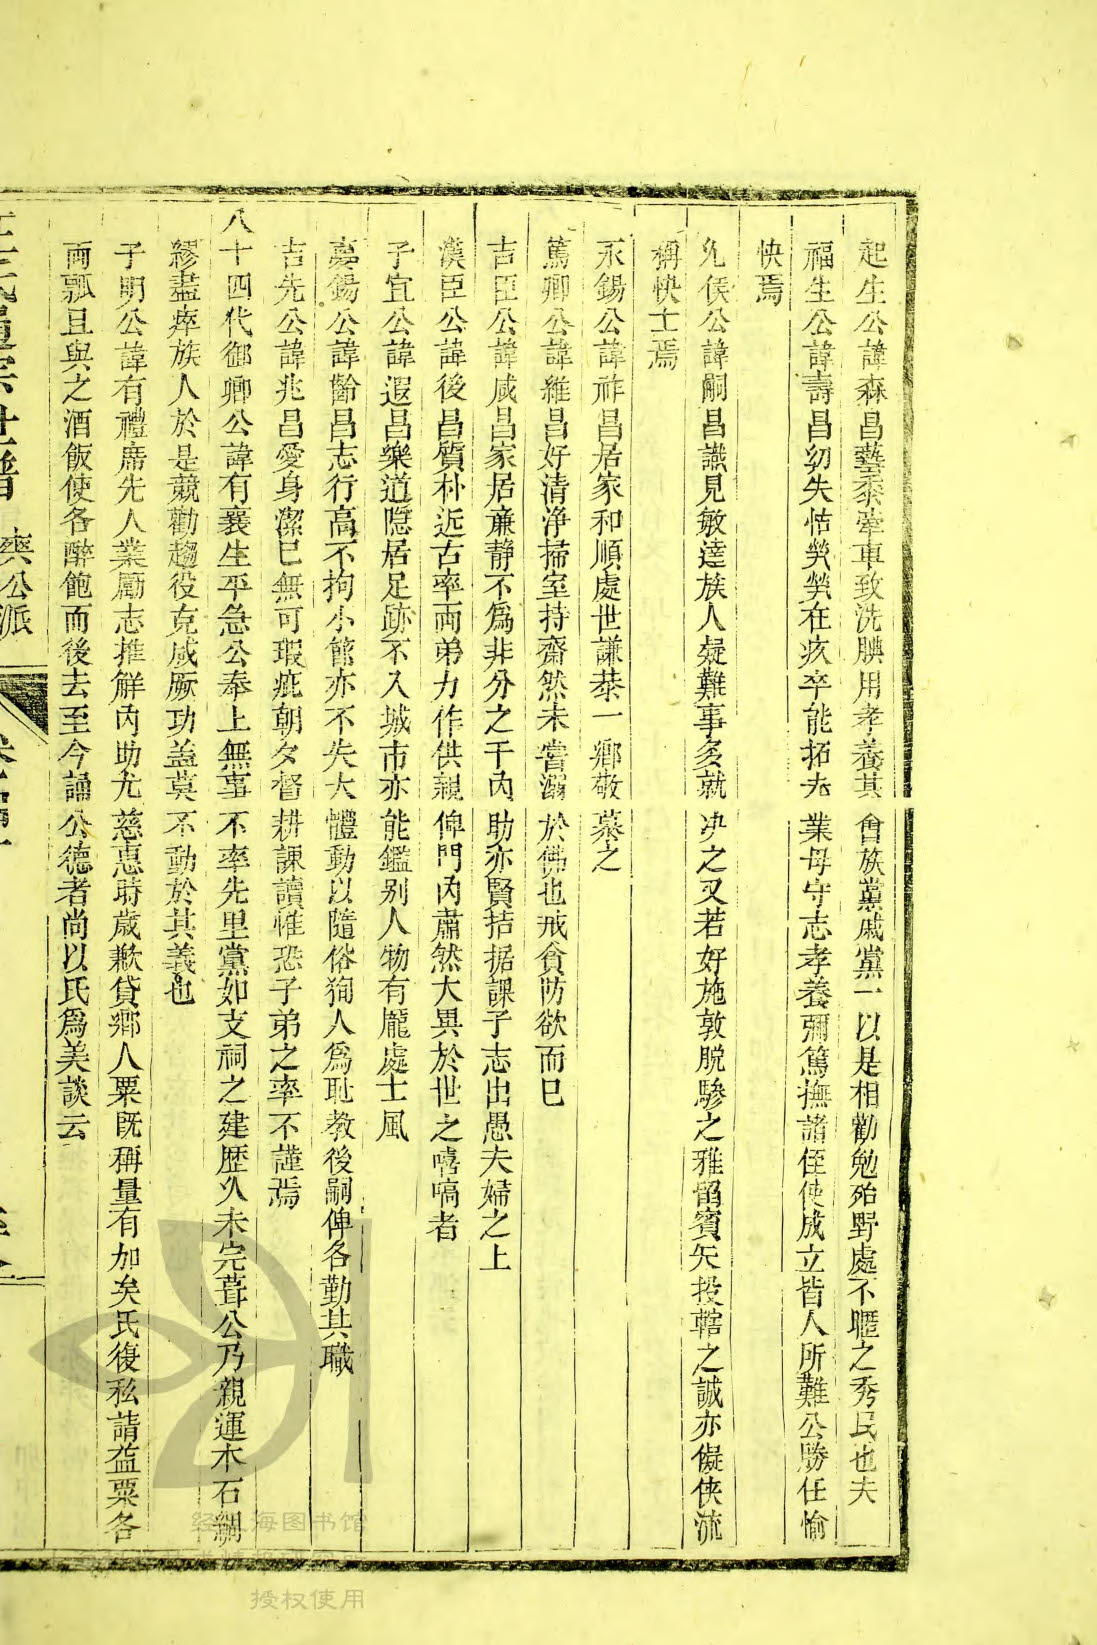 起生公諱森昌藝黍牽車致洗腆用孝養其會族黨戚黨一以是相勸勉殆野處不暱之秀民也夫
福生公諱壽昌幼失怙煢煢在疚卒能拓先業母守志孝養彌篤撫諸侄使成立皆人所難公勝任愉
快焉
允侯公諱嗣昌識見敏達族人疑難事多就决之又若好施敦脫驂之雅留賓矢投轄之誠亦儗俠流
稱快士焉
永錫公諱祚昌居家和順處世謙恭一鄉敬慕之
篤卿公諱維昌好清净掃室持齋然未嘗溺於佛也戒貪防欲而已
吉臣公諱咸昌家居亷静不爲非分之干内助亦賢拮据課子志出愚夫婦之上
漢臣公諱後昌質朴近古率両弟力作供親俾門内肅然大異於世之嘻嗃者
子宜公諱遐昌樂道隠居足跡不入城市亦能鑑别人物有龎處士風
夢錫公諱齡昌志行高不拘小節亦不失大體動以隨俗狥人爲耻教後嗣俾各勤其職
吉先公諱兆昌愛身潔已無可瑕疵朝夕督耕課讀惟恐子弟之率不謹焉
八十四代御卿公諱有襄生平急公奉上無事不率先里黨如支祠之建歷久未完葺公乃親運木石綢
繆盡瘁族人於是競勸趨役克咸厥功盖莫不動於其義也
子明公諱有禮席先人業勵志推解内助尤慈惠時歲歉貸鄉人粟旣稱量有加矣氏復私請益粟各
両瓢且與之酒飯使各醉飽而後去至今誦公德者尚以氏爲美談云
奭公派
經上海图书馆
授权使用